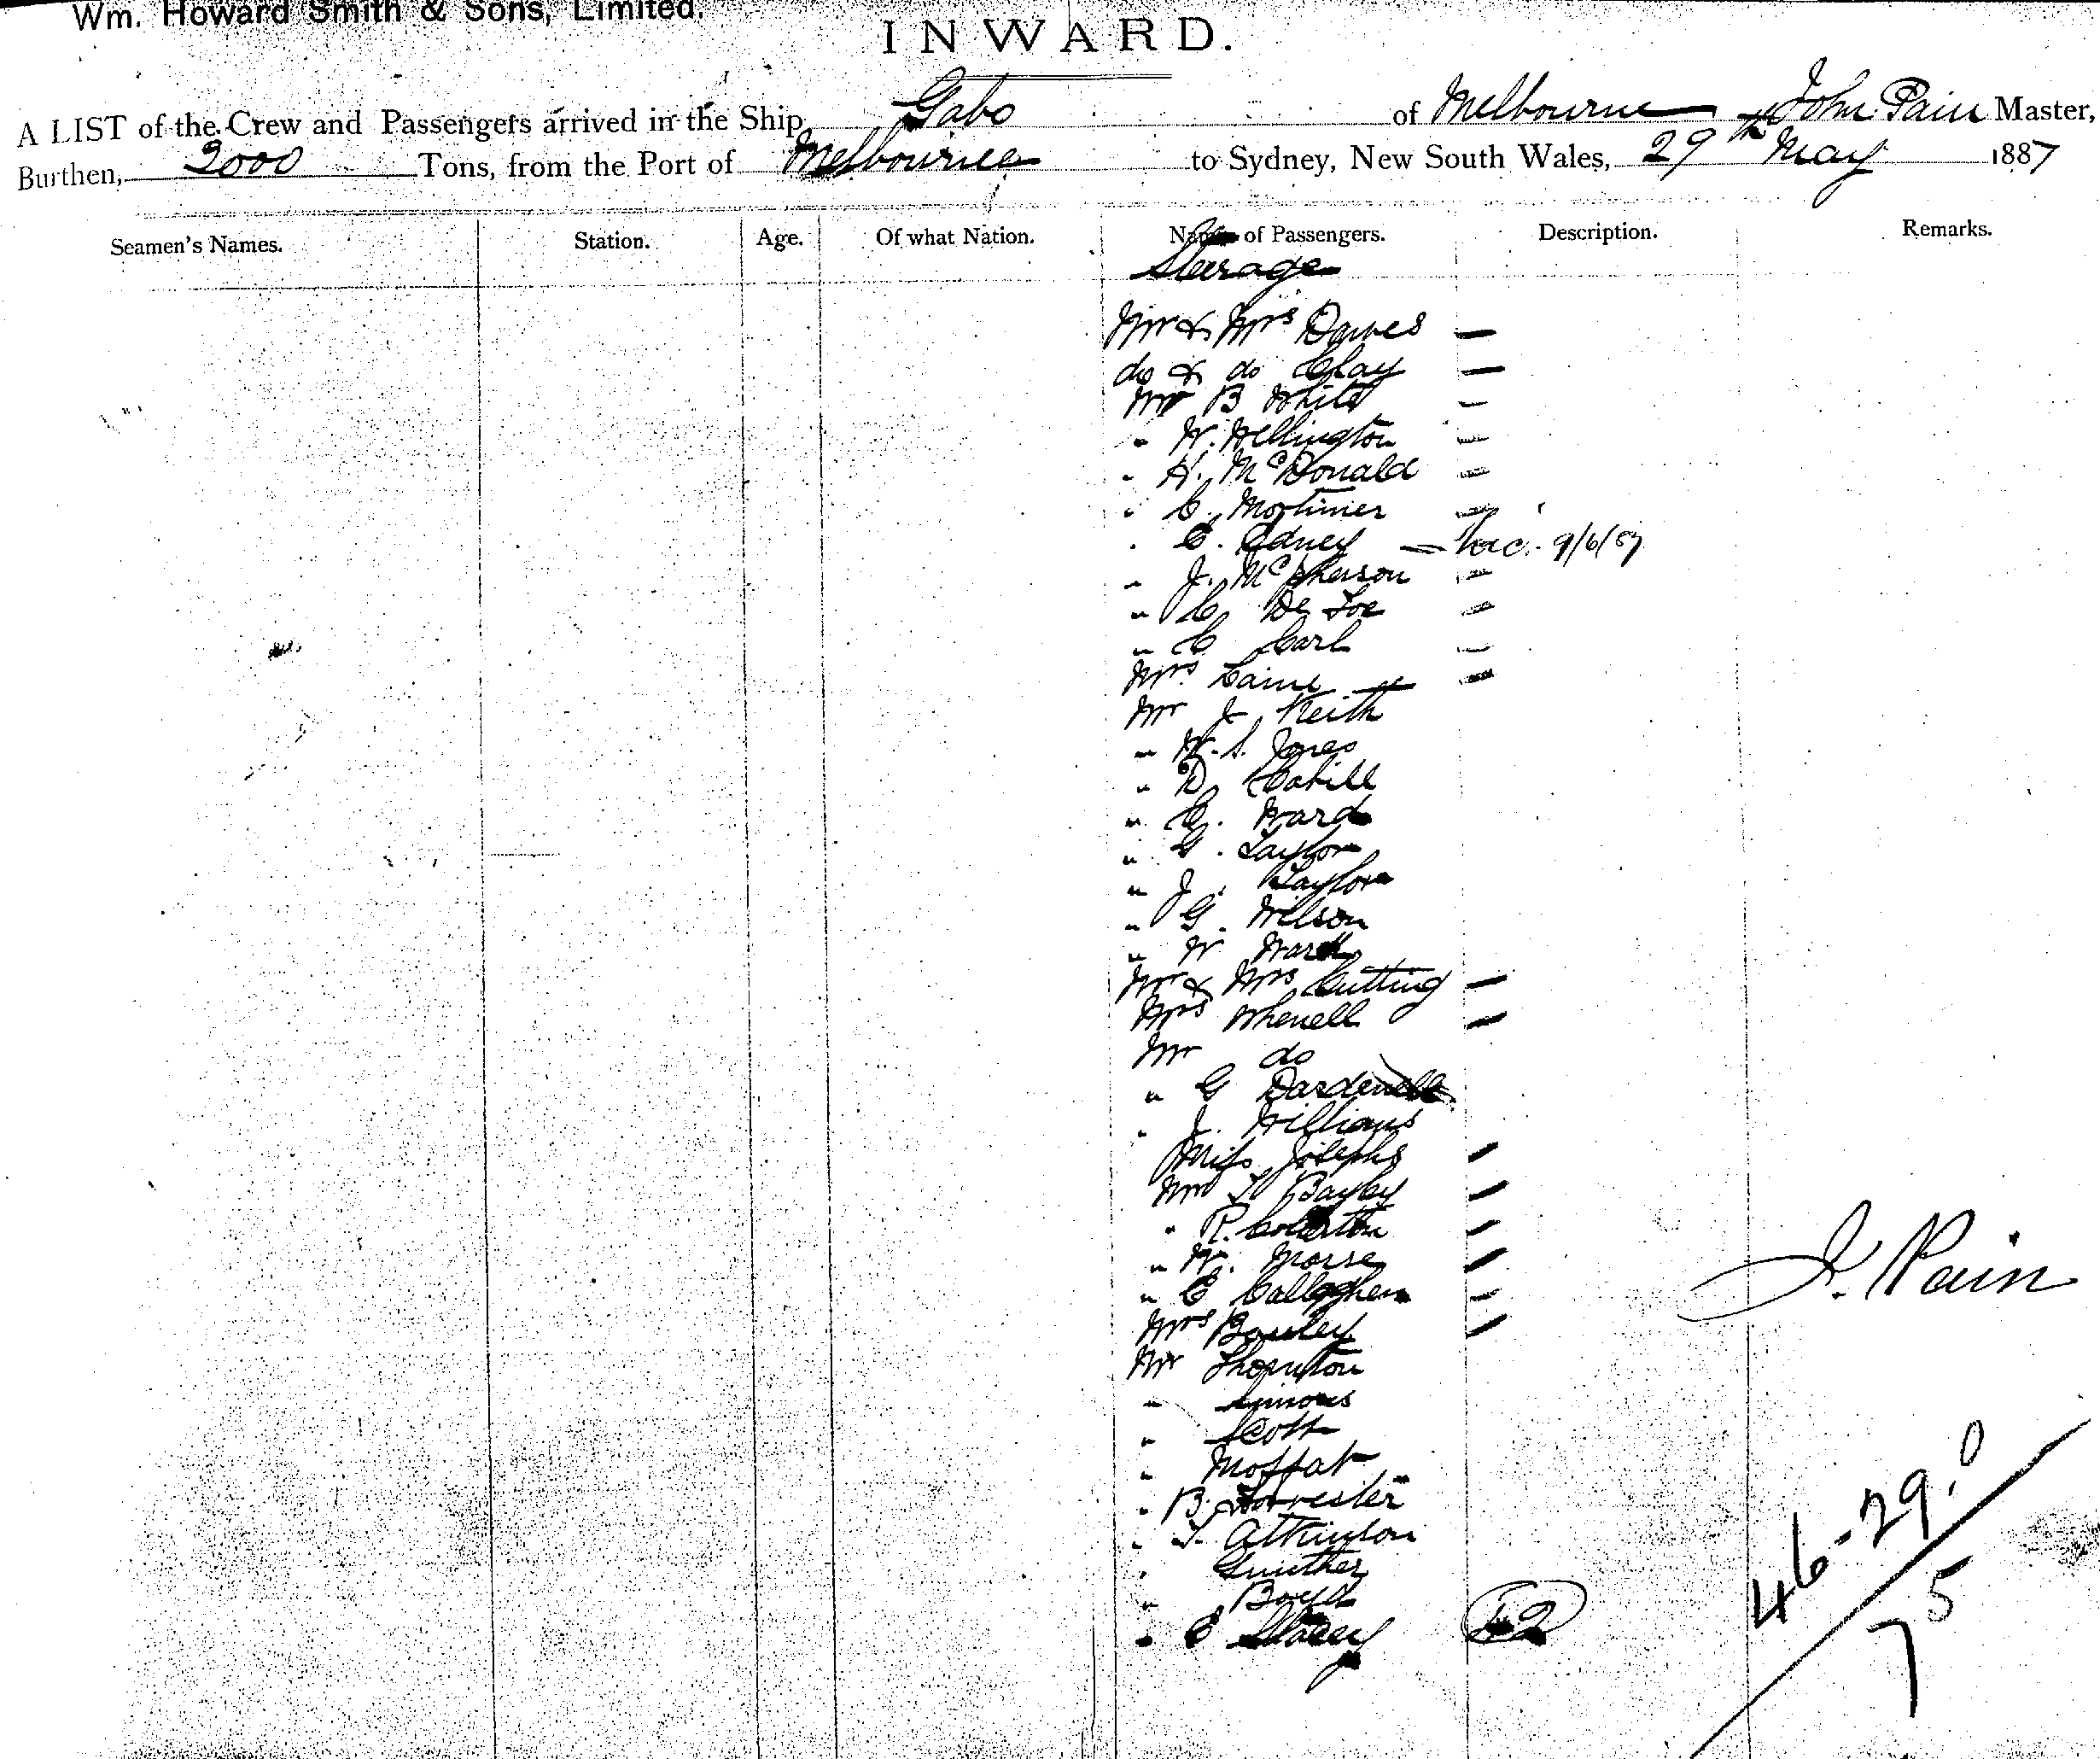 Wm. Howard Smith & Sons, Limited.
INWARD.
A LIST of the Crew and Passengers arrived in the Ship Gabo of Melbourne John Pain Master,
Burthen, 2000 Tons, from the Port of Melbourne to Sydney, New South Wales, 29th May 1887
Seamen's Names. Station. Age. Of what Nation. Names of Passengers. Description. Remarks.
Steerage
Mr & Mrs Dawes —
do & do Clay —
Mr B White —
" W. Wellington —
" H. McDonald —
" C. Mortimer —
" C. Edney — 9/6/87
" J. McPherson —
" C De Foe —
" C Carl —
Mrs Caine —
Mr J Keith
" W. S. Jones
" D. Cahill
" C. Ward
" G. Taylor
" J. Taylor
" G. Wilson
" W Ward
Mr & Mrs Cutting —
Mrs Whenell —
Mr do
" G
" J. Williams
Miss Josephs —
Mr T Bayley —
" R. —
" W. Morse —
" C Callaghan —
Mrs —
Mr Thornton
" Simons
" Scott
" Moffat
" B. Forrester
" T. Atkinson
"
" Boyd
" C Stacey
J. Pain
46-29.0
75